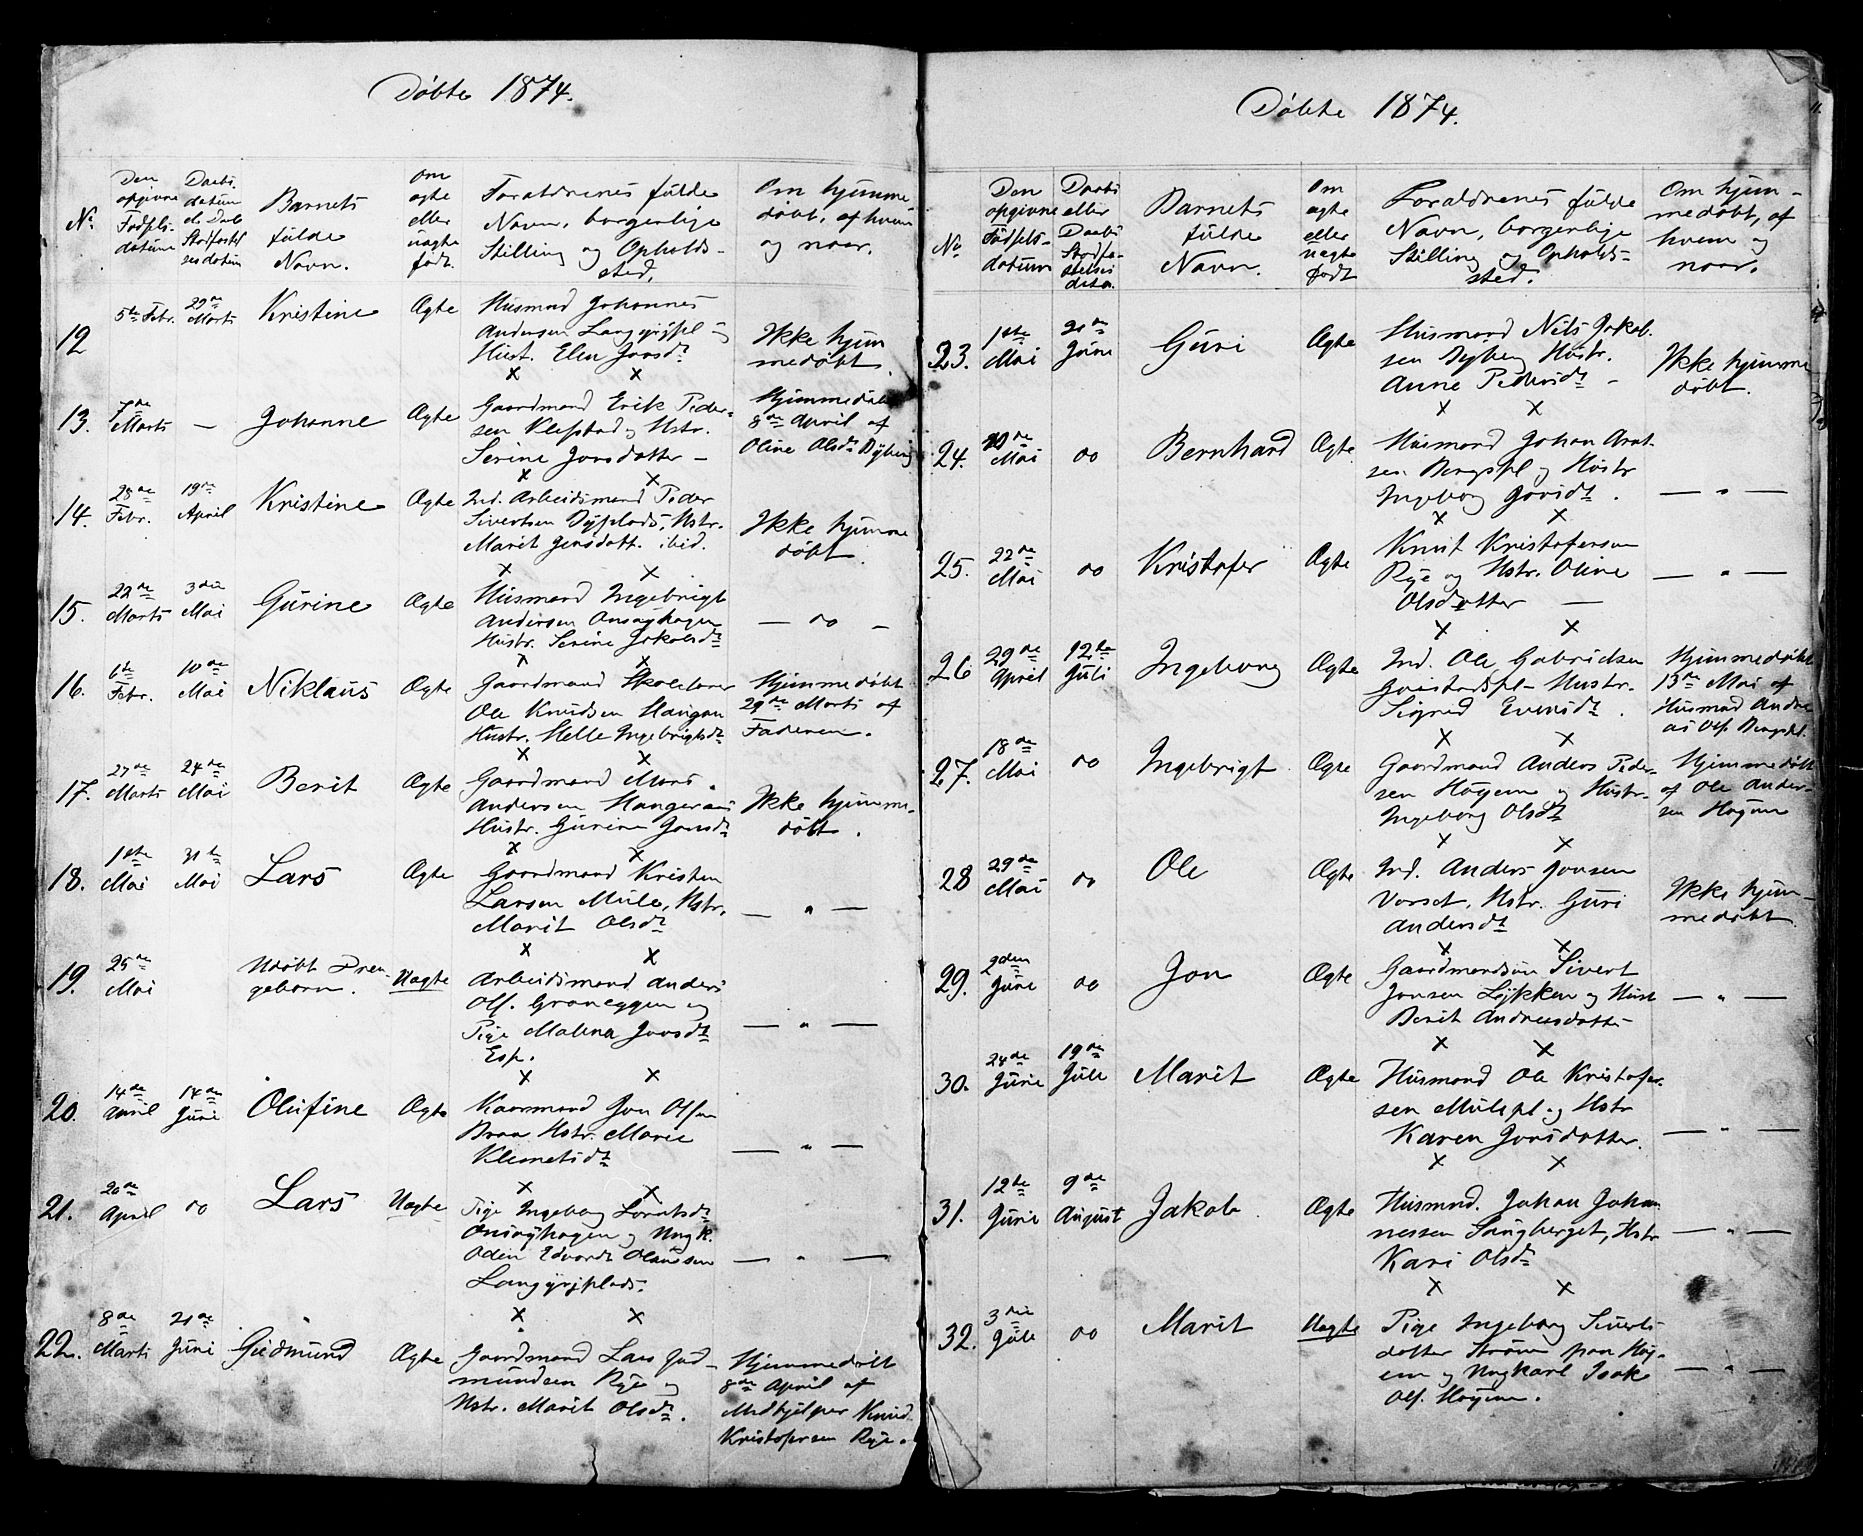 Döbte 1874.
No
Den opgivne Födselsdatum
Daabsdatum el. Daab Stadfæstelsesdatum
Barnets fulde Navn.
Om ægte eller uægte födt.
Forældrenes fulde Navn, borgerlige Stilling og Opholdssted.
Om hjemmedöbt, af hvem og naar.
12
5te Febr.
29de Marts
Kristine
Ægte
Husmand Johannes
Andersen
Hust. Elen Jonsdt
Ikke hjem
medöbt.
13.
7de Marts
—
Johanne
Ægte
Gaardmand Erik Peder-
sen Klefstad og Hstr.
Serine Jonsdatter —
Hjemmedöbt
8de April af
Oline Olsdt Dyberg
14.
28de Febr.
19de April
Kristine
Ægte
Ind. Arbeidsmand Peder
Sivertsen Hstr.
Marit Jensdatt. ibid.
Ikke hjemme
döbt.
15.
22de Marts
3die Mai
Gurine
Ægte
Husmand Ingebrigt
Andersen
Hustr. Serine Jakobsdt
— do —
16.
6te Febr.
10de Mai
Niklaus
Ægte
Gaardmand Skolelærer
Ole Knudsen Haugan
Hustr. Helle Ingebrigtsdt
Hjemmedöbt
29de Marts af
Faderen.
17.
27de Marts
24de Mai
Berit
Ægte
Gaardmand Mons
Andersen
Hustr. Gurine Jonsdt
Ikke hjemme-
döbt.
18.
1ste Mai
31te Mai
Lars
Ægte
Gaardmand Kristen
Larsen Mule, Hstr.
Marit Olsdt
— " —
19.
25de Mai
Udöbt Dren-
gebarn.
Uægte
Arbeidsmand Anders
Ols. Graneggen og
Pige Malena Jonsdt
Esp.
— " —
20.
14de April
14de Juni
Olufine
Ægte
Gaardmand Jon Olsen
Braa Hstr. Marie
Klemetsdt
— " —
21.
20de April
do
Lars
Uægte
Pige Ingeborg Lorntsdt
og Ungk.
Odin Edvardt Olaussen
— " —
22.
8de Marts
21de Juni
Gudmund
Ægte
Gaardmand Lars Gud-
mundsen Rye og
Hstr. Marit Olsdt.
Hjemmedöbt
8de April af
Medhjelper Knud
Kristofersen Rye.
Döbte 1874.
No
Den opgivne Födselsdatum
Daabs eller Daabs Stadfæstelses datum
Barnets fulde Navn.
Om ægte eller uægte födt
Forældrenes fulde Navn, borgerlige Stilling og Opholdssted.
Om hjemmedöbt, af hvem og naar.
23.
1ste Mai
21de Juni
Guri
Ægte
Husmand Nils Jakob-
sen Dyberg Hustr.
Anne Pedersdt —
Ikke hjemme
döbt.
24.
10de Mai
do
Bernhard
Ægte
Husmand Johan Arnt-
sen Bergspl og Hustr
Ingeborg
— " —
25.
22de Mai
do
Kristofer
Ægte
Knut Kristofersen
Rye og Hstr. Oline
Olsdatter —
— " —
26
29de April
12te Juli
Ingeborg
Ægte
Ind. Ole Gabrielsen
Hustr.
Sigrid Evensdt.
Hjemmedöbt
13de Mai af
Husmand Andre
as Ols. Bergspl.
27.
18de Mai
do
Ingebrigt
Ægte
Gaardmand Anders Peder-
sen Högem og Hustr.
Ingeborg Olsdt
Hjemmedöbt
af Ole Ander-
sen Högem
28
29de Mai
do
Ole
Ægte
Ind. Anders Jonsen
Vorset, Hstr. Guri
Andersdt
Ikke hjem-
medöbt
29.
2den Juni
do
Jon
Ægte
Gaardmandsön Sivert
Jonsen Lökken og Hust
Berit Andreasdatt-
— " —
30.
24de Juni
19de Juli
Marit
Ægte
Husmand Ole Kristofer-
sen Mulepl. og Hstr
Karen Jonsdatter.
— " —
31.
12te Juni
9de August
Jakob
Ægte
Husmnd. Johan Johan
nessen Saugberget, Hstr
Kari Olsdt
— " —
32.
3die Juli
do
Marit
Uægte
Pige Ingeborg Siverts
datter Ström paa Hög-
em og Ungkarl Isak
Ols. Högem.
— " —